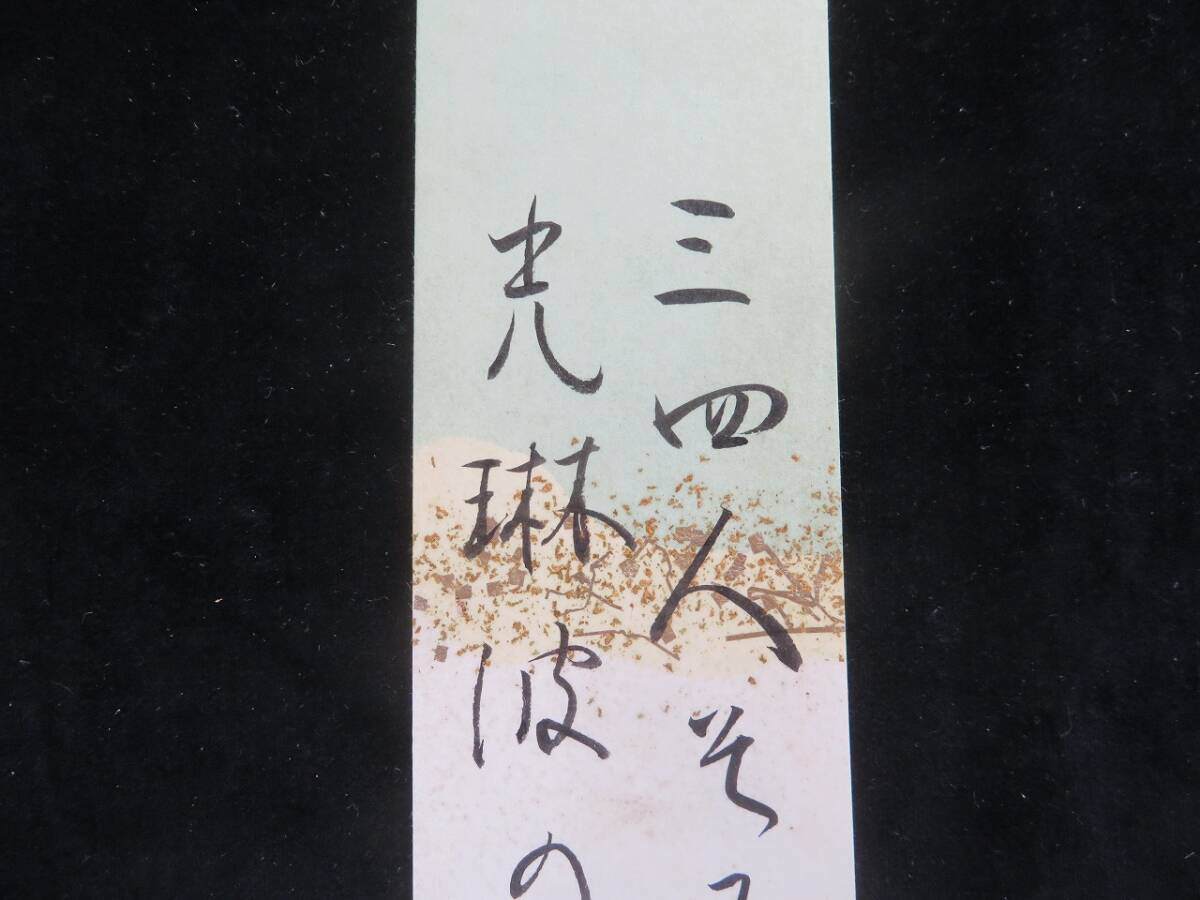 三四人そ
光琳波の